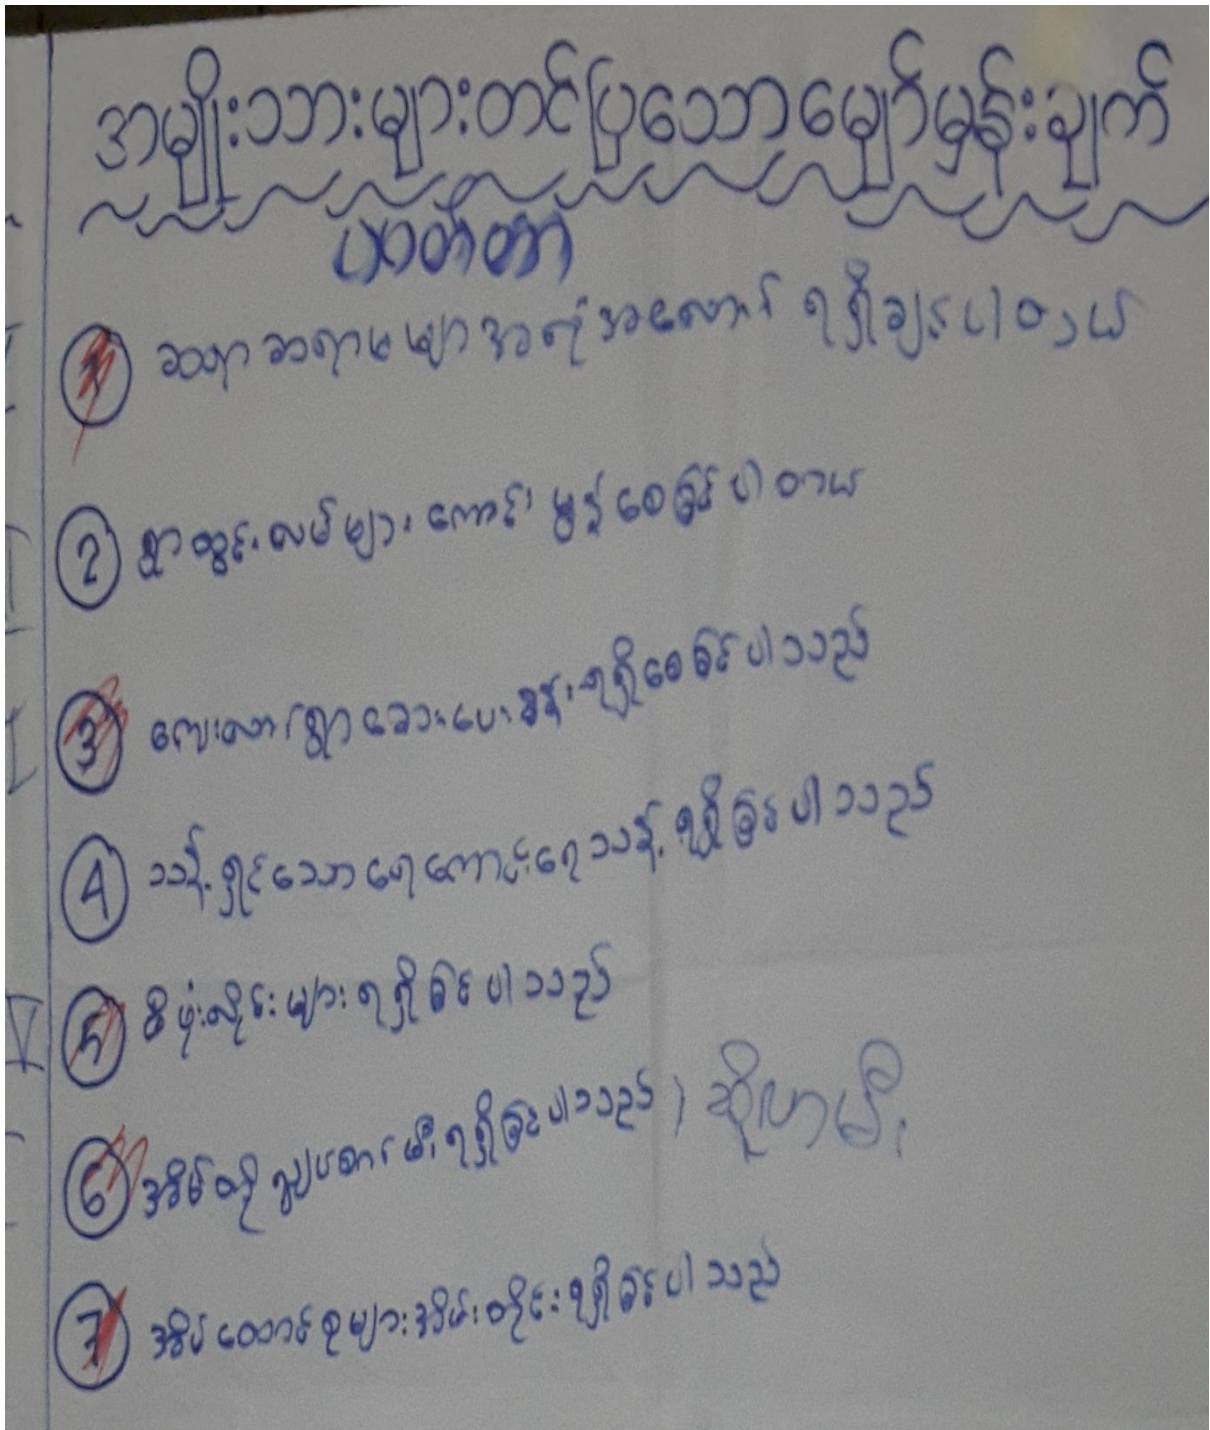 အမျိုးသားများတင်ပြသောမျှော်မှန်းချက်
ပဝတ်တာ
① ဆရာ ဆရာမ များ အလုံအလောက် ရရှိချင်ပါတယ်
② ရွာတွင်းလမ်းများ ကောင်းမွန်စေခြင်ပါတယ်
③ ကျေးလက် ရွာ ဆေးပေးခန်း ရရှိစေခြင်ပါသည်
④ သန့်ရှင်သော ရေကောင်းရေသန့် ရရှိခြင်ပါသည်
⑤ မီဖိုလိုင်းများ ရရှိခြင်ပါသည်
⑥ အိမ်တိုင် လျှပ်စစ်မီး ရရှိခြင်ပါသည် / ဆိုလာမီး
⑦ အိမ်ထောင်စုများ အိမ်တိုင်း ရရှိခြင်ပါသည်